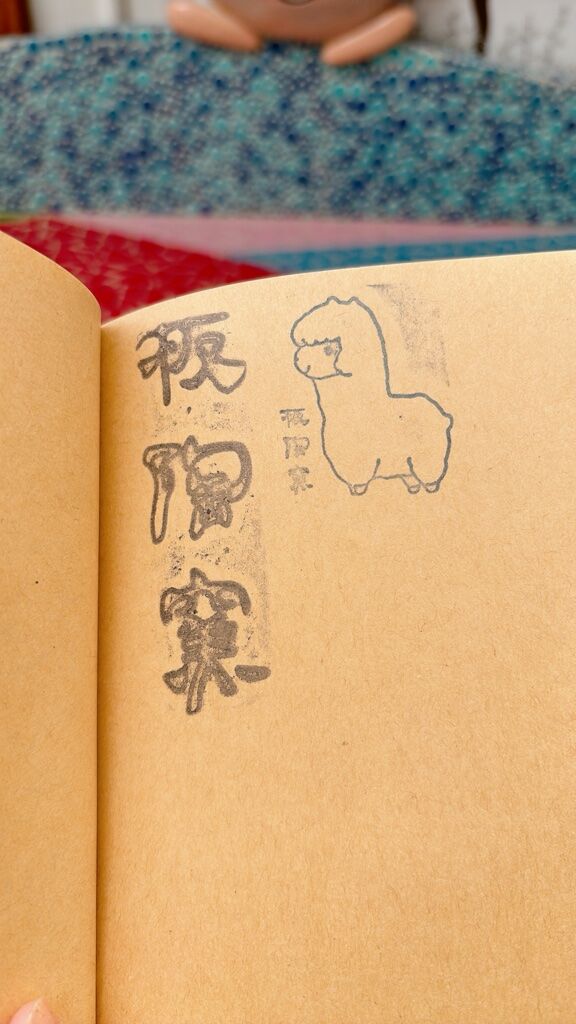 板陶窯
板陶窯